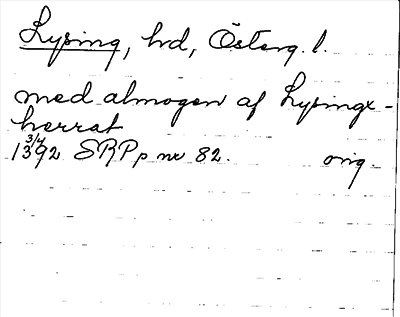 Lysing, hd, Österg. l.
med almogen af Lysingx-
herrat
3/4
1392 SRPp nr 82. orig.